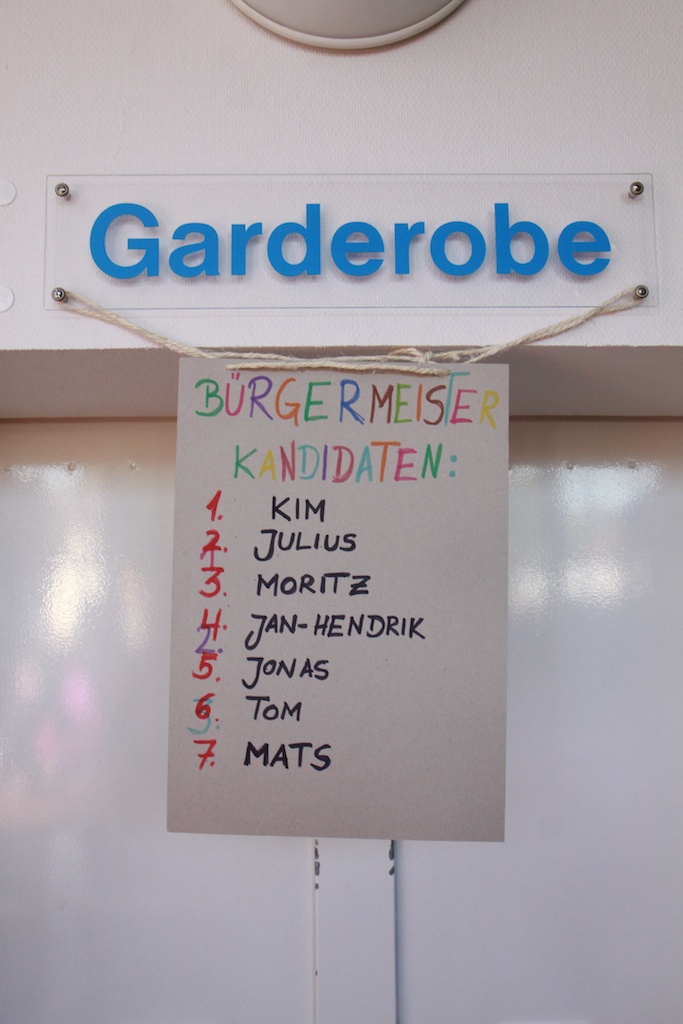 Garderobe
BÜRGERMEISTER
KANDIDATEN:
1. KIM
2. JULIUS
3. MORITZ
4. JAN-HENDRIK
5. JONAS
6. TOM
7. MATS